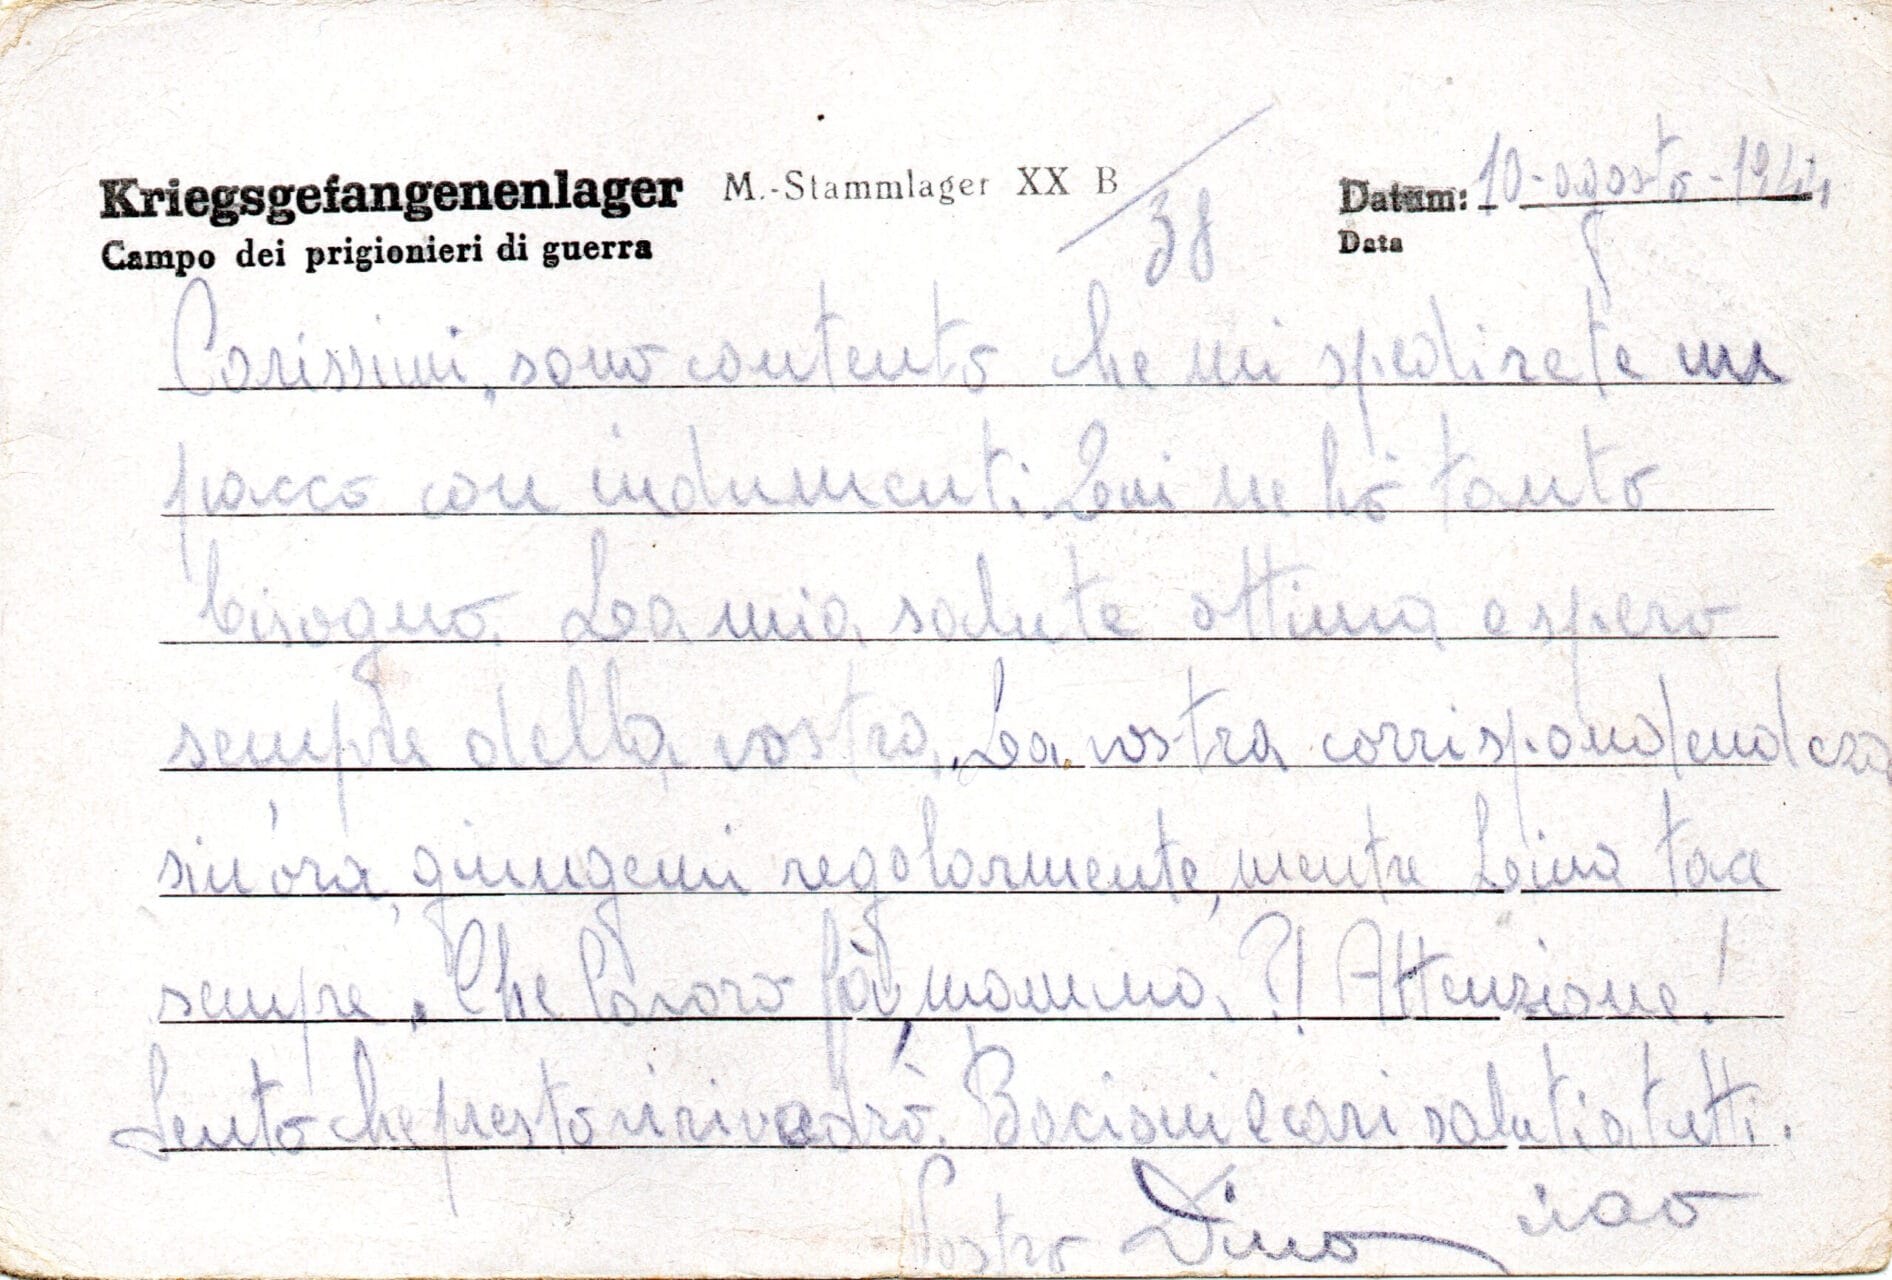 Kriegsgefangenenlager M.-Stammlager XX B
38
Datum: 10-agosto-1944
Campo dei prigionieri di guerra
Data
Carissimi, sono contento che mi spedirete un
pacco con indumenti. Qui ne hò tanto
bisogno. La mia salute ottima e spero
sempre della vostra. La vostra corrispondendeza
sin'ora, giungemi regolarmente, mentre Leina tace
sempre. Che lavoro fà, mamma ?! Attenzione!
Sento che presto vi rivedrò. Bacioni e cari saluti a tutti.
Vostro Dino ciao